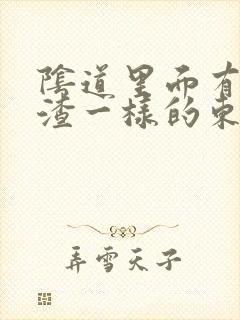 陰道里而有
渣一樣的東
弄雪天子